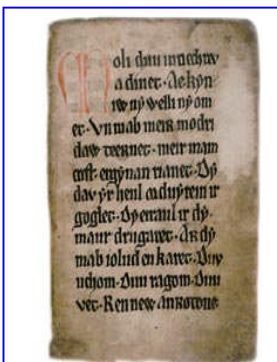 Moli duu innechrev
a diuet. Ae kyn
iw ny welli ny om
et. Vn mab meir modri
daw teernet. meir mam
crist ergynan rianet. Dy
dav yr heul o duyrein ir
goglet. Dy eiraul ir dy
maur drugaret. Ar dy
mab iolud en karet. Duv
uchom. Duv ragom. Duv
vet. Ren new anrotone